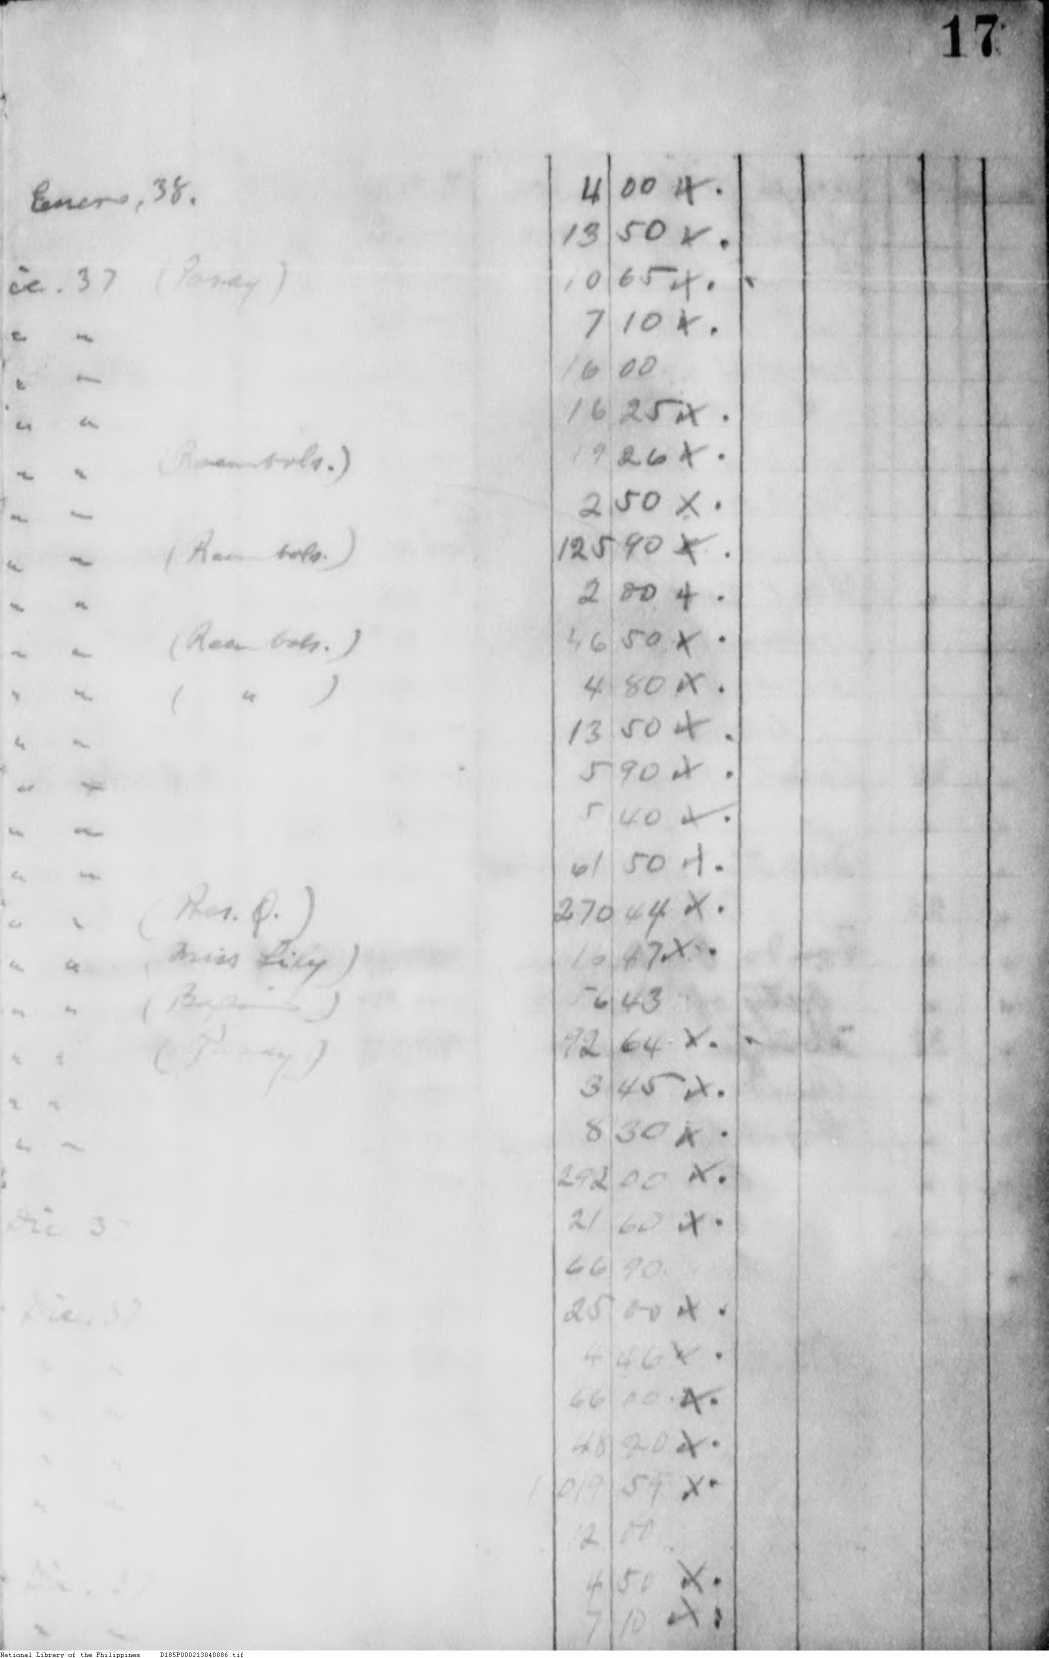 17
Enero, 38. 4 00 x.
13 50 x.
ic. 37 (Pavay) 10 65 x.
" " 7 10 x.
" " 16 00
" " 16 25 x.
" " 19 26 x.
" " 2 50 x.
" " 125 90 x.
" " 2 00 x.
" " 46 50 x.
" " ( " ) 4 80 x.
" " 13 50 x.
" " 5 90 x.
" " 5 40 x.
" " 61 50 x.
" " 270 44 x.
" " Miss Lily) 10 47 x.
" " 56 43
" " 92 64 x.
" " 3 45 x.
" " 8 30 x.
292 00 x.
Dic 3 21 60 x.
66 90
Dic. 37 25 00 x.
" " 4 46 x.
" " 66 00 x.
" " 48 20 x.
" " 1 019 59 x.
12 00
4 50 x.
" " 7 10 x.
National Library of the Philippines D185P000213040086.tif